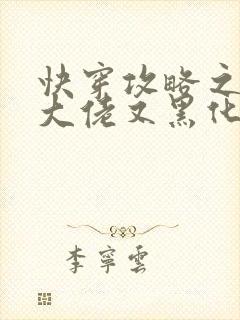 快穿攻略之
大佬又黑化
李寧雲